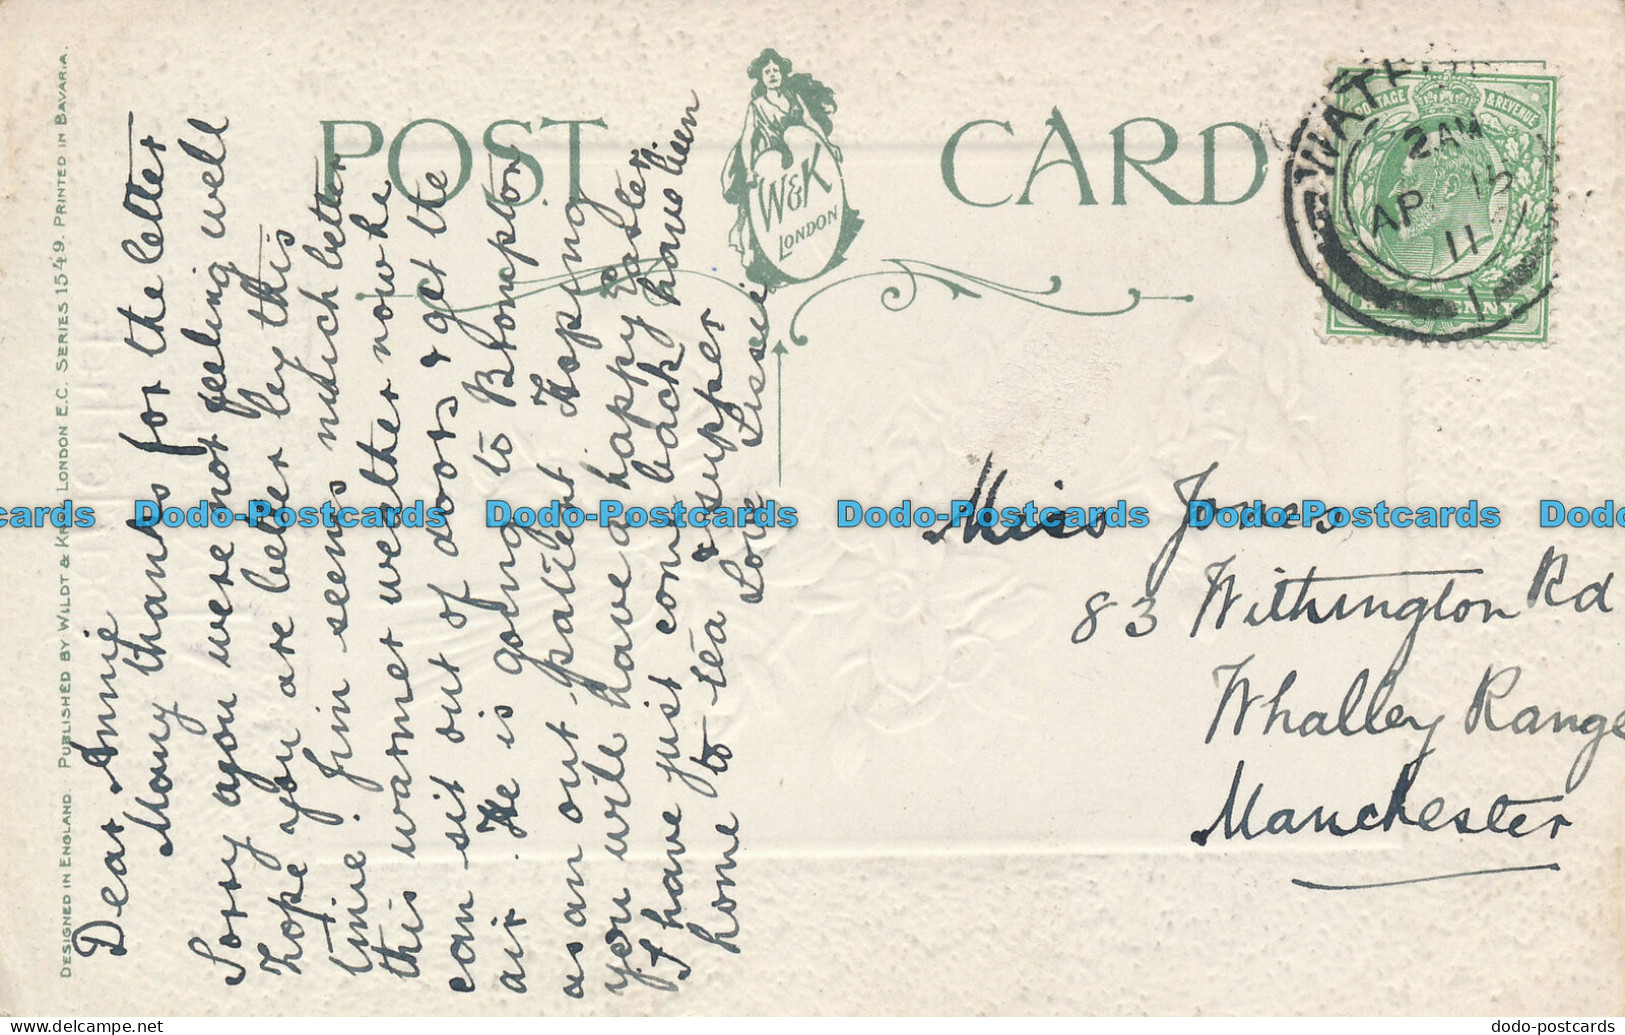 POST CARD
W&K
LONDON
DESIGNED IN ENGLAND. PUBLISHED BY WILDT & KRAY, LONDON E.C. SERIES 1549. PRINTED IN BAVARIA.
Dear Annie
Many thanks for the letter
Sorry you were not feeling well
Hope you are better by this
time. Jim seems much better
this warmer weather now he
can sit out of doors & get the
air. He is going to Brompton
as an out patient. Hoping
you will have a happy Easter.
I have just come back have been
home to tea & supper
Love Lissie
POSTAGE & REVENUE
WATF
2 AM
AP 15
11
1
Miss Jones
83 Withington Rd
Whalley Range
Manchester
cards Dodo-Postcards Dodo-Postcards Dodo-Postcards Dodo-Postcards Dodo
www.delcampe.net
dodo-postcards